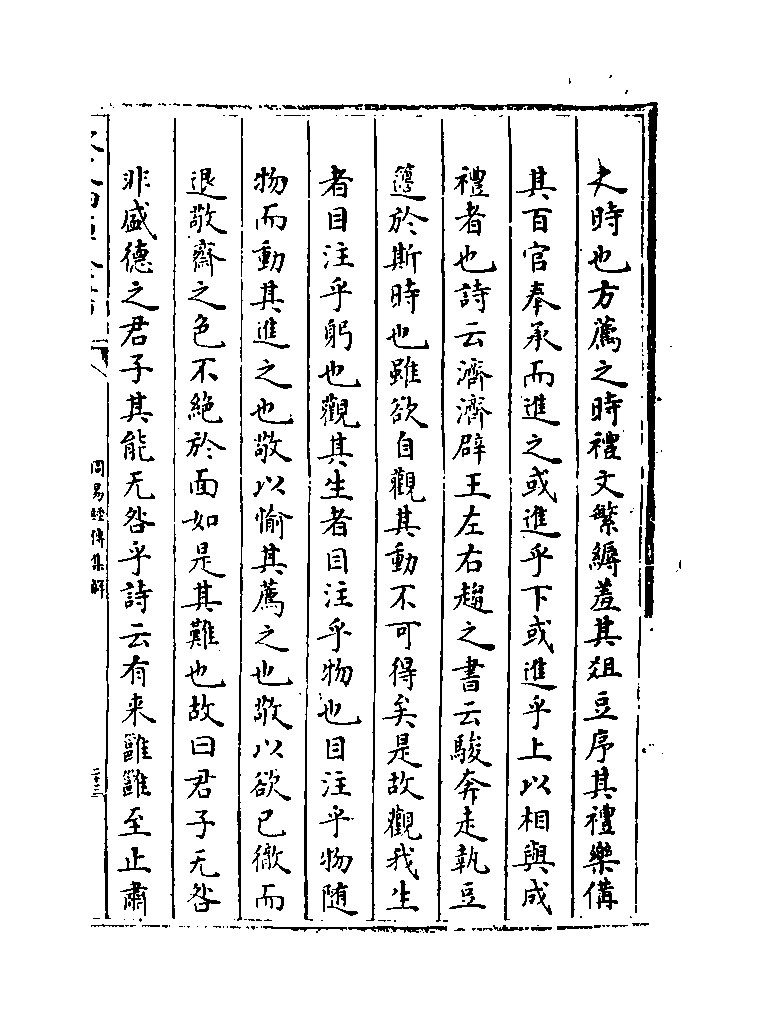 大時也方薦之時禮文繁縟羞其俎豆序其禮樂俻
其百官奉承而進之或進乎下或進乎上以相與成
禮者也詩云濟濟辟王左右趨之書云駿奔走執豆
籩於斯時也雖欲自觀其動不可得矣是故觀我生
者目注乎躬也觀其生者目注乎物也目注乎物随
物而動其進之也敬以愉其薦之也敬以欲已徹而
退敬齋之色不絶於面如是其難也故曰君子无咎
非盛德之君子其能无咎乎詩云有来雝雝至止肅
周易經傳集解